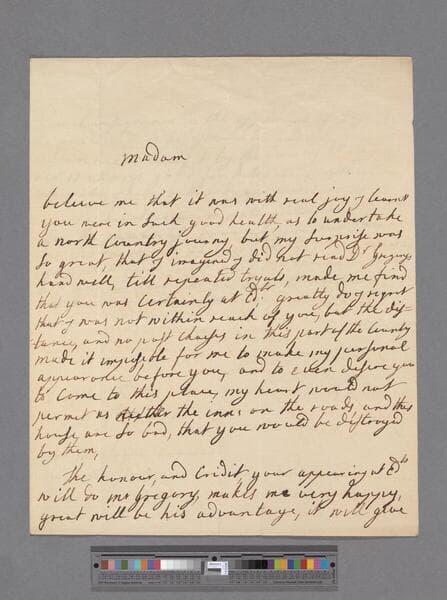 Madam
beleive me that it was with real joy I learnt
you were in Such good health, as to undertake
a north Country journy, but my Surprise was
So great, that I imagined I did not read Dr Gregorys
hand well, till repeated tryals, made me find
that you was certainly at Edr. greatly do I regret
that I was not within reach of you, but the dis-
tance, and no post Chaises in this part of the Country
made it impossible for me to make my personal
appearance before you, and to even desire you
to Come to this place, my heart would not
permit as the inns on the roads, and this
house, are So bad, that you would be distroyed
by them,
The honour, and Credit your appearing at Edr
will do Mr Gregory, makes me very happy,
great will be his advantage, it will give